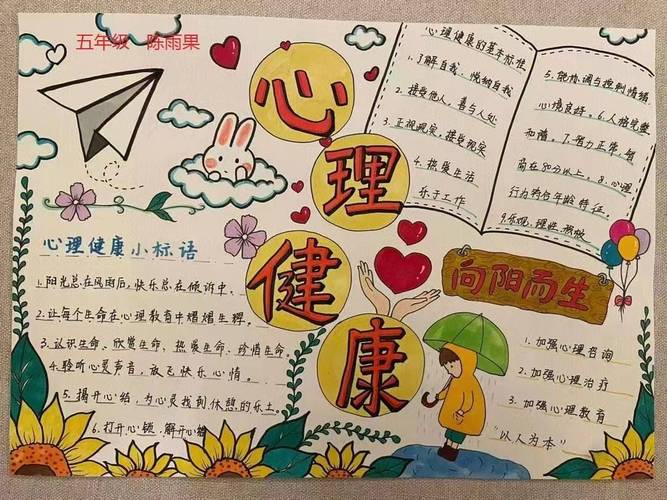 五年级 陈雨果
心理健康
心理健康的基本标准
1.了解自我、悦纳自我
2.接受他人，善与人处
3.正视现实，接受现实
4.热爱生活
乐于工作
5.能协调与控制情绪
心境良好。6.人格完整
和谐。7.智力正常，智
商在80分以上。8.心理
行为符合年龄特征。
9.乐观、理性
向阳而生
1.加强心理咨询
2.加强心理治疗
3.加强心理教育
“以人为本”
心理健康小标语
1.阳光总在风雨后，快乐总在倾诉中。
2.让每个生命在心理教育中熠熠生辉。
3.认识生命、欣赏生命、热爱生命、珍惜生命。
4.聆听心灵声音，放飞快乐心情。
5.揭开心结，为心灵找到休憩的乐土。
6.打开心锁，解开心结